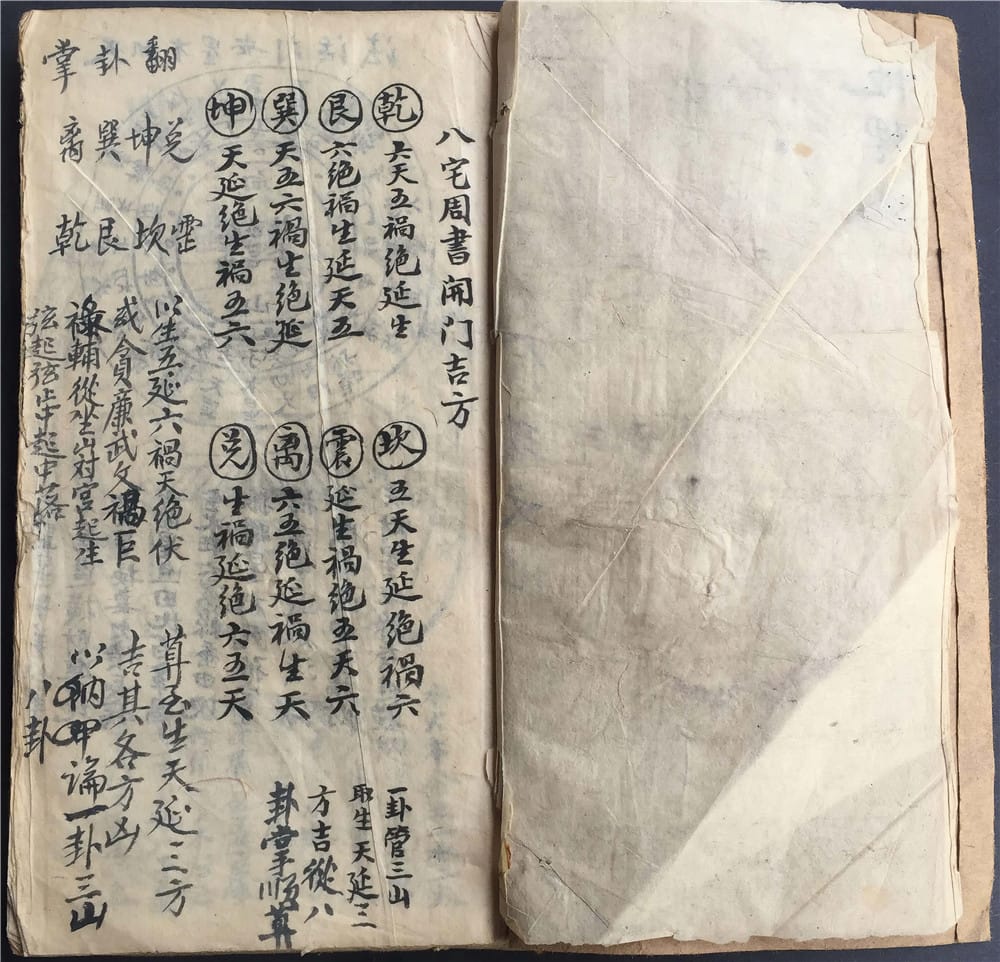 八宅周書開门吉方
乾 六天五禍绝延生
艮 六绝禍生延天五
巽 天五六禍生绝延
坤 天延绝生禍五六
坎 五天生延绝禍六
震 延生禍绝五天六
离 六五绝延禍生天
兑 生禍延绝六五天
一卦管三山
取生天延三
方吉從八
卦掌順算
翻卦掌
兑坤巽离
坎艮乾
以生五延六禍天绝伏
或貪廉武文巨
禄輔從坐山对宫起生
弦起弦止中起中落
算至生天延三方
吉其各方凶
以納甲論一卦三山
八卦